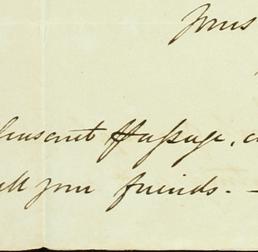 Yours
pleasant Passage, a
all your friends. -